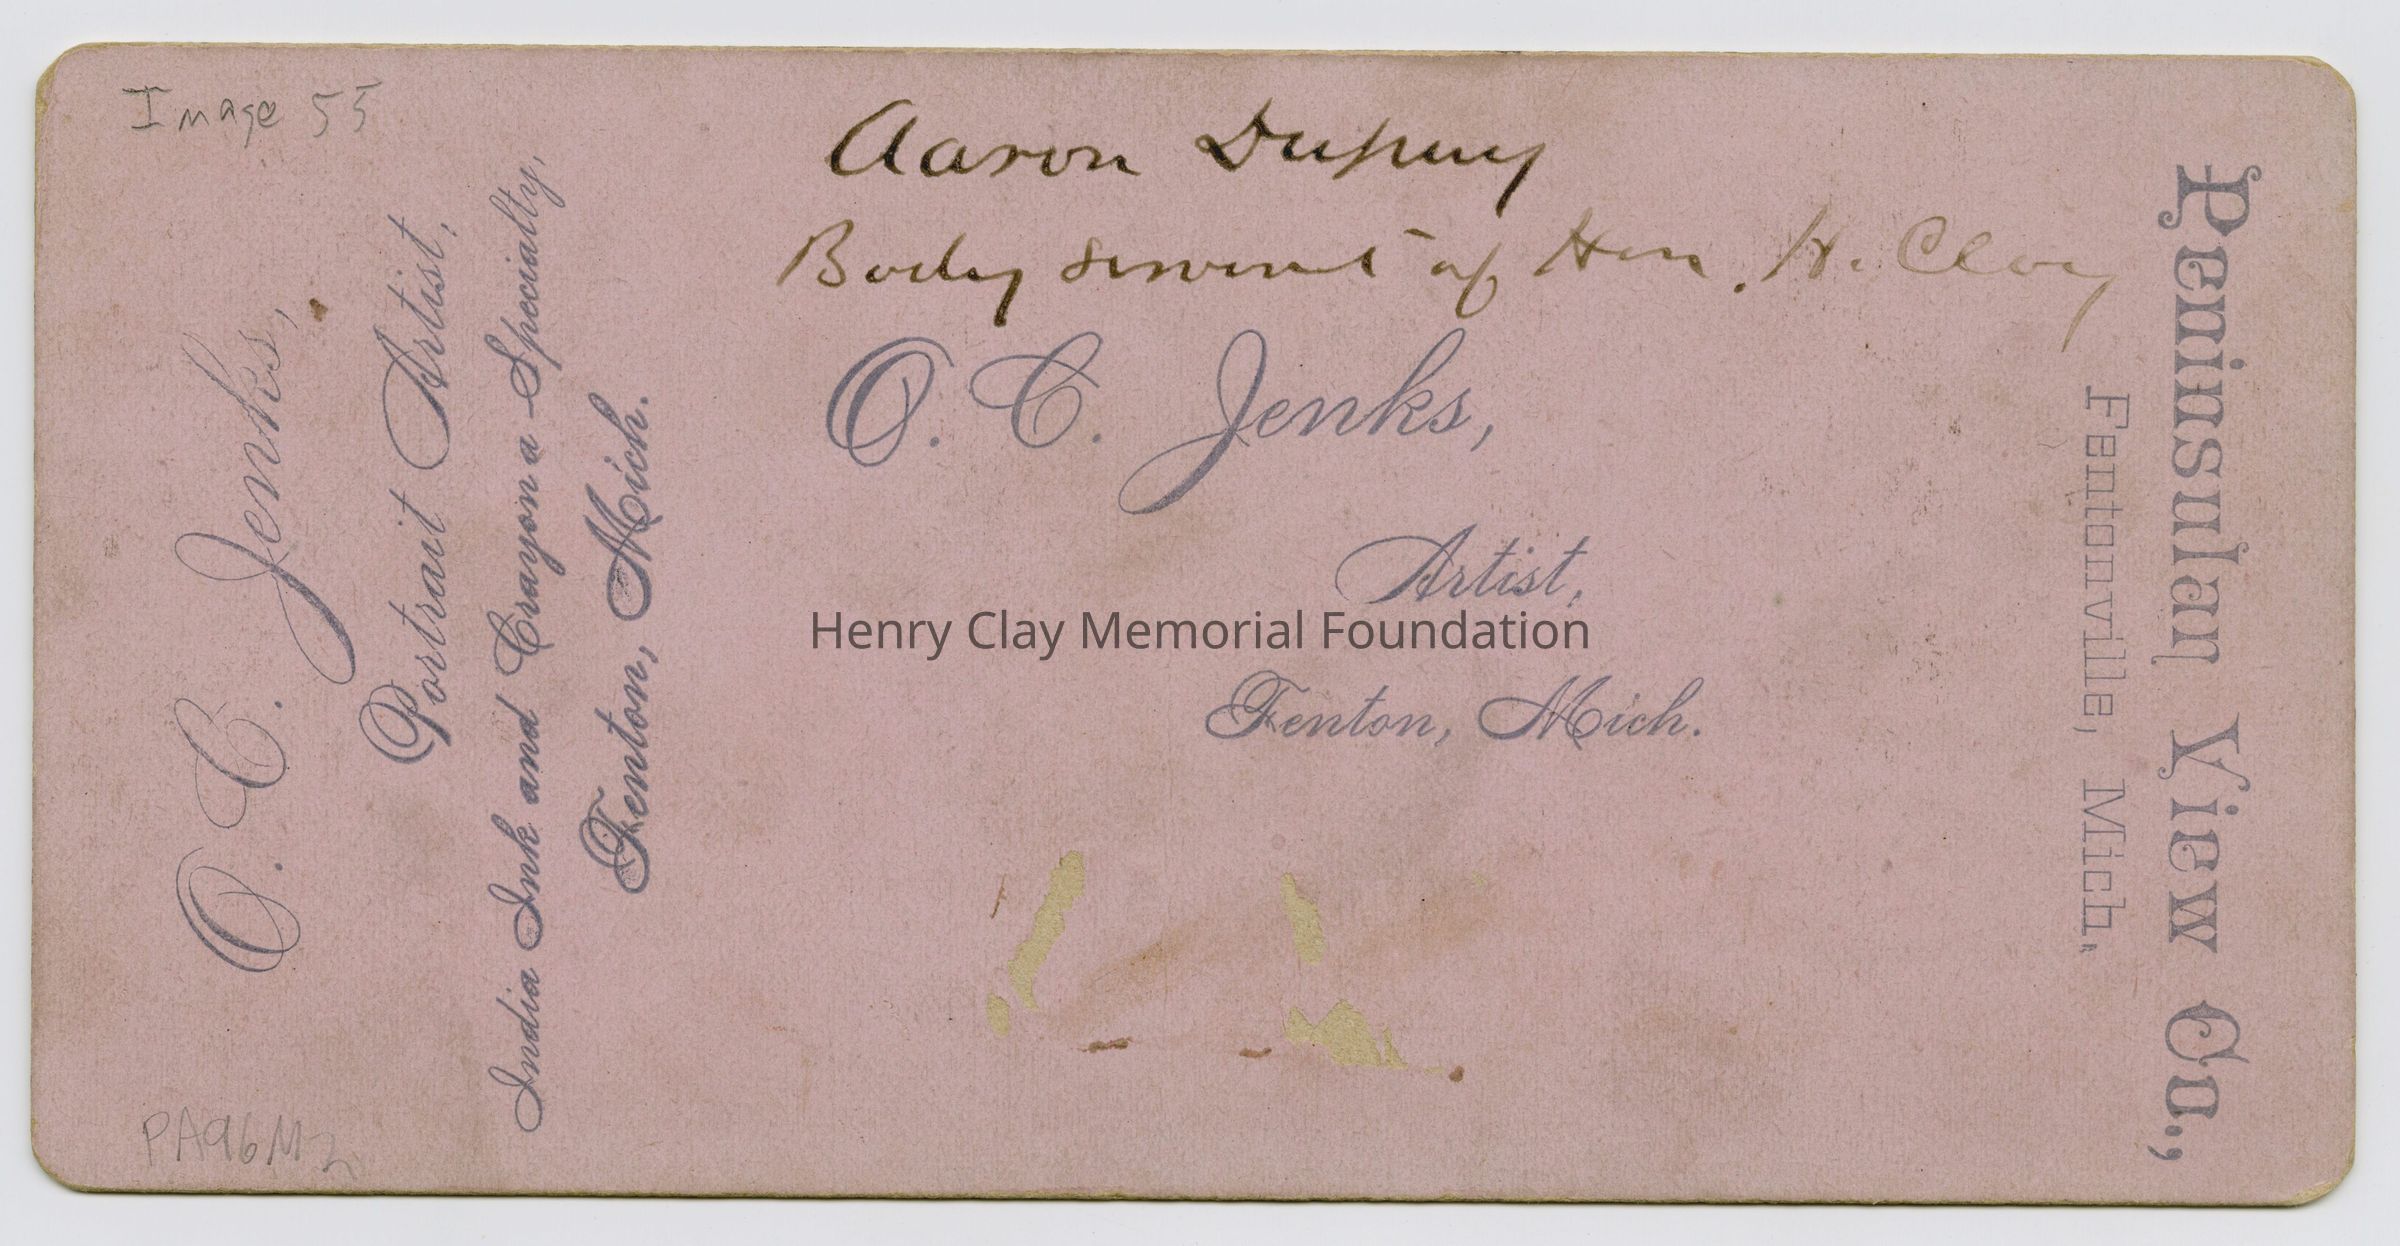 Image 55
Aaron Dupuy
Body servant of Hon. H. Clay
O. C. Jenks,
Artist,
Fenton, Mich.
O. C. Jenks,
Portrait Artist.
India Ink and Crayon a Specialty,
Fenton, Mich.
Peninsular View Co.,
Fentonville, Mich.
Henry Clay Memorial Foundation
PA96M2